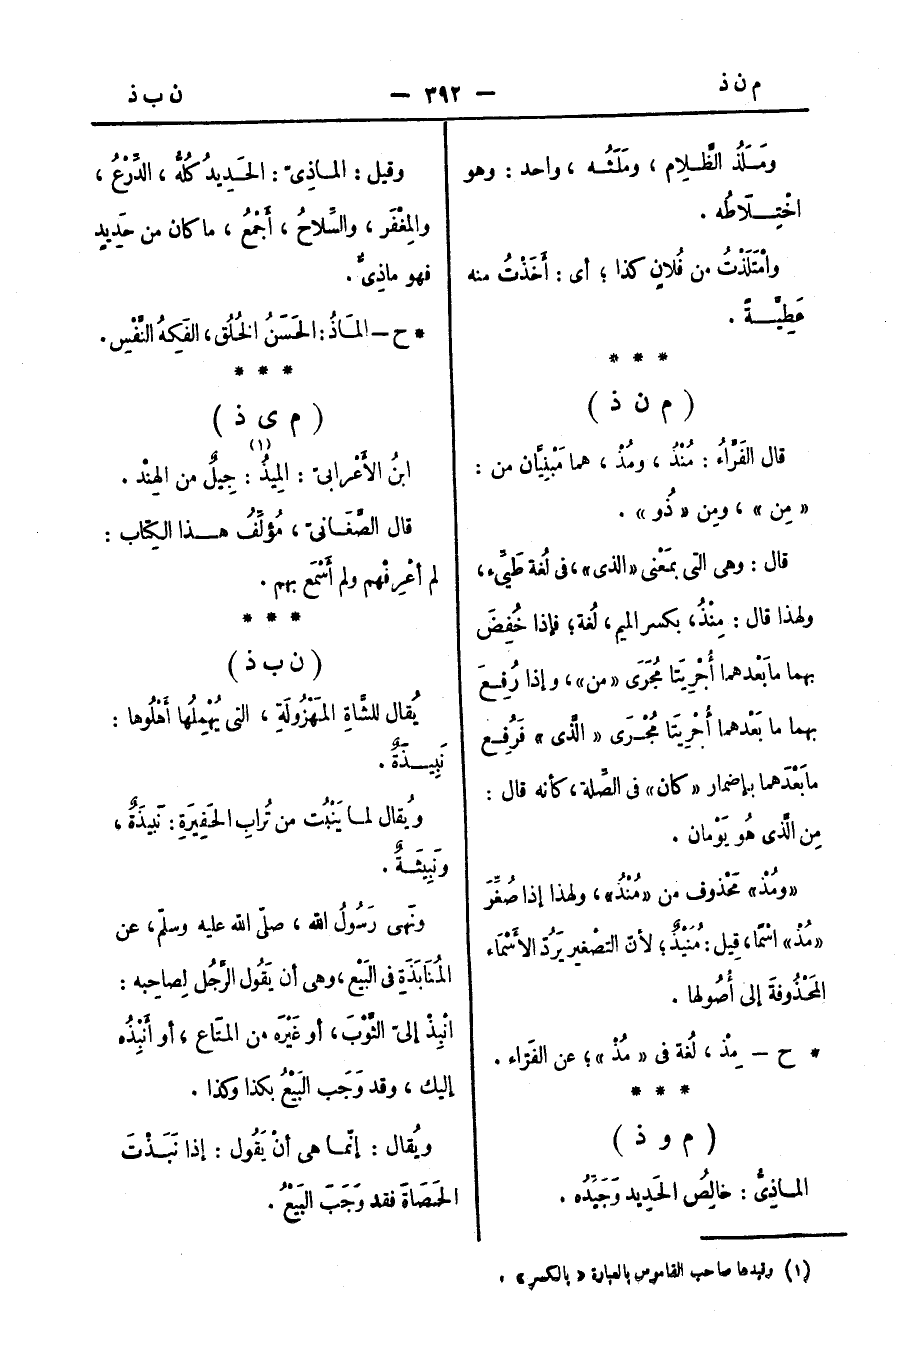 م ن ذ
— ٣٩٢ —
ن ب ذ
ومَلَذُ الظَّلام ، ومَلَثُه ، واحد : وهو
اخْتِلَاطُه .
وامْتَلَذْتُ من فُلانٍ كذا ؛ أى : أَخَذْتُ منه
عَطِيَّةً .
* * *
( م ن ذ )
قال الفَرّاءُ : مُنْذُ ، ومُذْ ، هما مَبْنِيَّان من :
« مِن » ، ومِن « ذُو » .
قال : وهى التى بمَعْنى «الذى» ، فى لُغة طَيِّىء ،
ولهذا قال : مِنْذُ ، بكسر الميم ، لُغة ؛ فإذا خُفِضَ
بهما ما بَعْدهما أُجْرِيَتا مُجْرَى «من» ، وإذا رُفِعَ
بهما ما بَعْدهما أُجْرِيَتَا مُجْرَى « الَّذى » فَرُفِع
ما بَعْدَهما بإضمار «كان» فى الصِّلة ، كأنه قال :
مِن الَّذى هُو يَوْمان .
«ومُذْ» مَحْذوف من «مُنْذُ» ، ولهذا إذا صُغِّرَ
«مُذْ» اسْمًا ، قِيل : مُنَيْذٌ ؛ لأنّ التصغير يَرُدّ الأَسْمَاء
المَحْذُوفةَ إلى أُصُولها .
* ح — مِذْ ، لُغة فى « مُذْ » ؛ عن الفَرّاء .
* * *
( م و ذ )
المـاذِىُّ : خالِصُ الحَديد وَجَيِّدُه .
وقيل : المـاذِىّ : الحَدِيدُ كُلُّه ، الدِّرْعُ ،
والمِغْفَر ، والسِّلاحُ ، أَجْمعُ ، ما كان من حَدِيدٍ
فهو ماذِىٌّ .
* ح — المَـاذُ : الحَسَنُ الخُلُق ، الفَكِهُ النَّفْسِ .
* * *
( م ى ذ )
ابنُ الأَعْرابىّ : المِيذُ (١) : جِيلٌ من الهِنْد .
قال الصَّغَـانىّ ، مُؤلِّفُ هـذا الكِتاب :
لم أعْرِفْهم ولم أَسْمَع بهم .
* * *
( ن ب ذ )
يُقال للشَّاةِ المَهْزُولَةِ ، التى يُهْمِلُها أَهْلُوها :
نَبِيـذَةٌ .
ويُقال لمـا يَنْبُت من تُرابِ الحَفِيرَةِ : نَبِيذَةٌ ،
ونَبِيثَةٌ .
ونَهى رَسُولُ الله ، صلّى الله عليه وسلّم ، عن
المُنَابَذَةِ فى البَيْع ، وهى أن يَقُول الرَّجُل لِصاحبه :
انْبِذْ إلىّ الثَّوْبَ ، أو غَيْرَه من المتَاع ، أو أَنْبِذُه
إليك ، وقد وَجَب البَيْعُ بكذا وكذا .
ويُقال : إنّمـا هى أنْ يَقُول : إذا نَبَذْتَ
الحَصَاةَ فقد وَجَبَ البَيْعُ .
(١) وقيدها صاحب القاموس بالعبارة « بالكسر » .